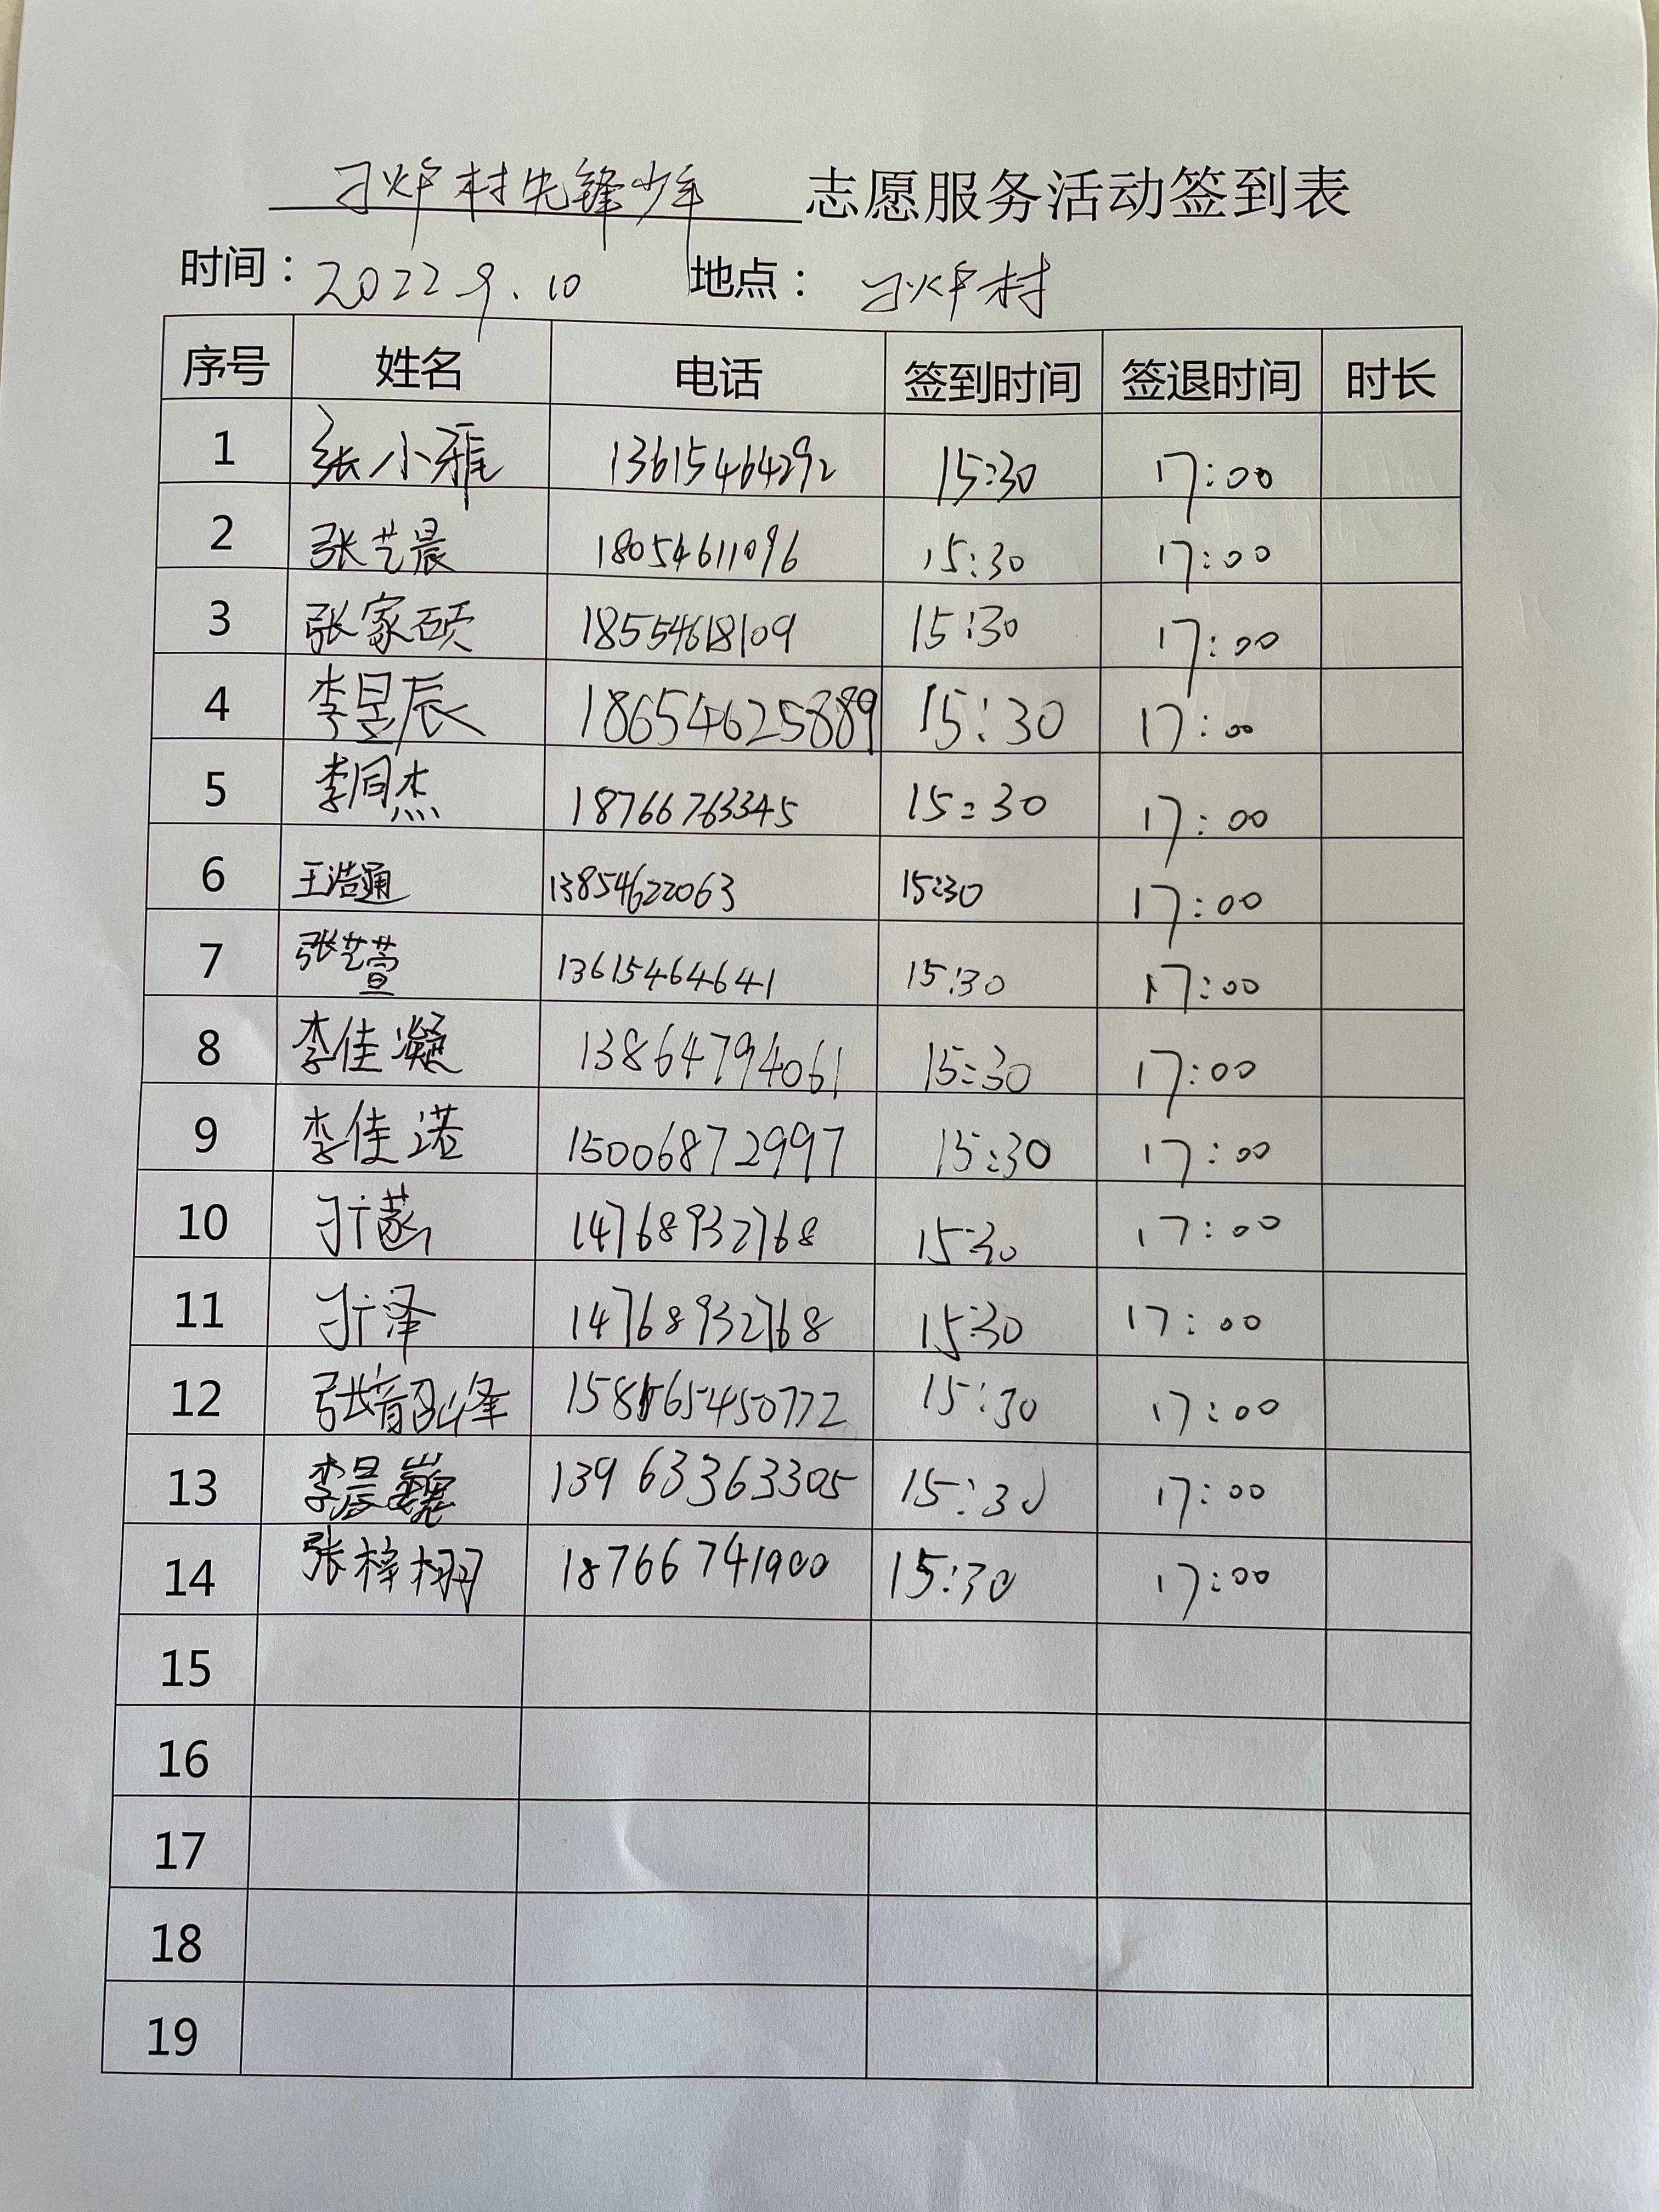 刁炉村先锋少年 志愿服务活动签到表
时间：2022 9.10 地点：刁炉村
序号 姓名 电话 签到时间 签退时间 时长
1 张小雅 13615464292 15:30 17:00
2 张艺晨 18054611096 15:30 17:00
3 张家硕 18554618109 15:30 17:00
4 李昱辰 18654625889 15:30 17:00
5 李同杰 18766763345 15:30 17:00
6 王浩通 13854622063 15:30 17:00
7 张艺萱 13615464641 15:30 17:00
8 李佳凝 13864794061 15:30 17:00
9 李佳诺 15006872997 15:30 17:00
10 14768932768 15:30 17:00
11 14768932768 15:30 17:00
12 15:30 17:00
13 李晨巍 13963363305 15:30 17:00
14 张梓栩 18766741900 15:30 17:00
15
16
17
18
19